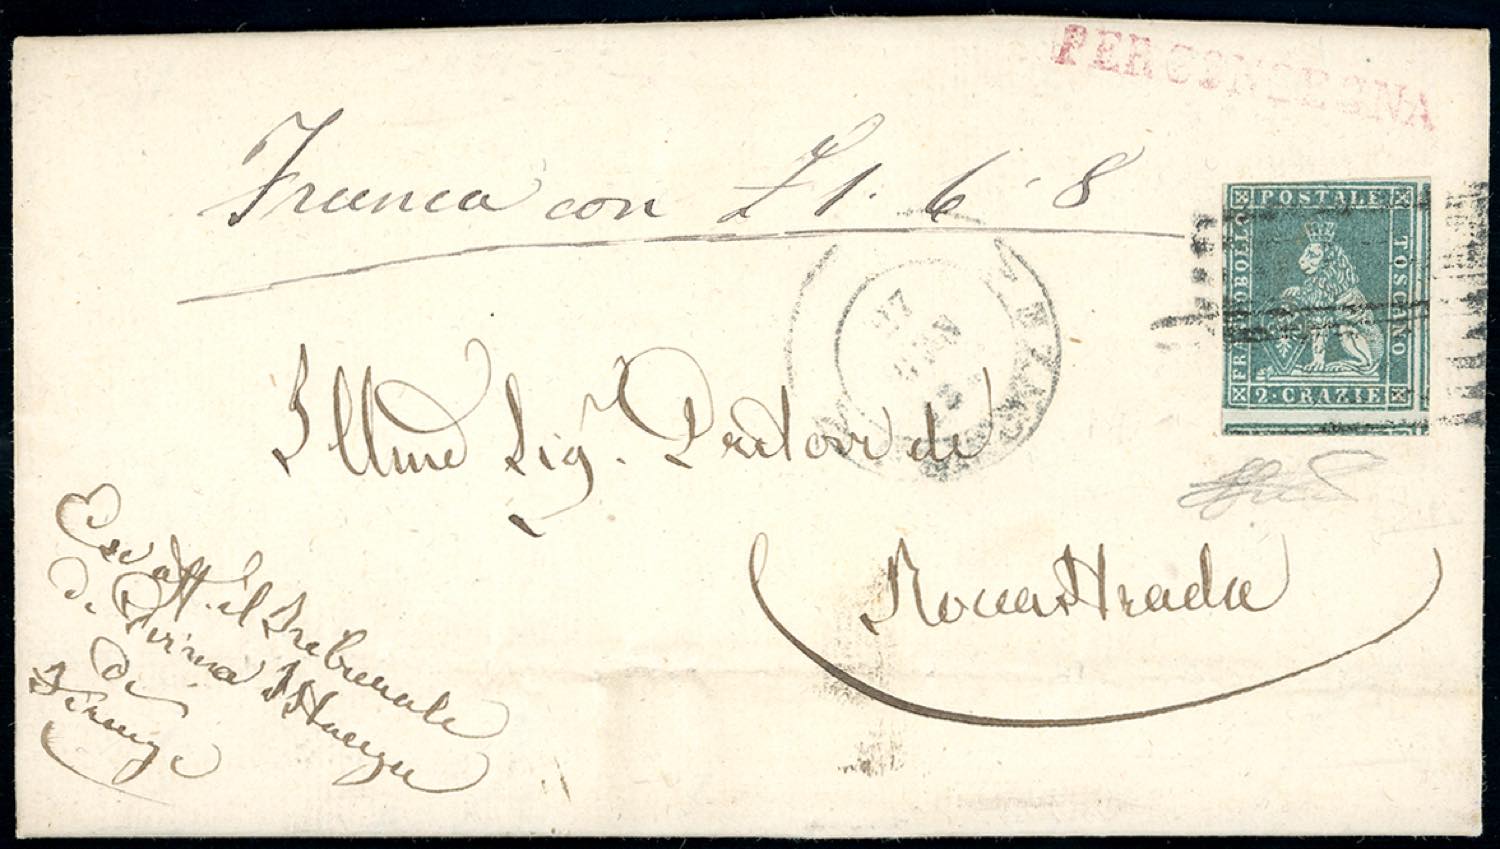 PER CONSEGNA
Franca con £ 1. 6. 8
FRANCOBOLLO
POSTALE
TOSCANO
2. CRAZIE
27
Illmo Sig. Pretore di
Roccastrada
Canc. att. il Tribunale
di Prima Istanza
di
Firenze